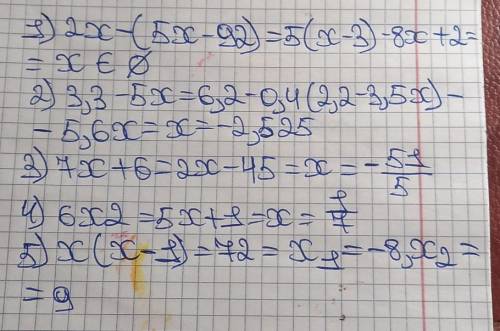 1) 2x-(5x-92)=5(x-3)-8x+2=
=x∈∅
2) 3,3-5x=6,2-0,4(2,2-3,5x)-
-5,6x=x=-2,525
3) 7x+6=2x-45=x=-51/5
4) 6x2=5x+1=x=1/7
5) x(x-1)=72=x1=-8,x2=
=9